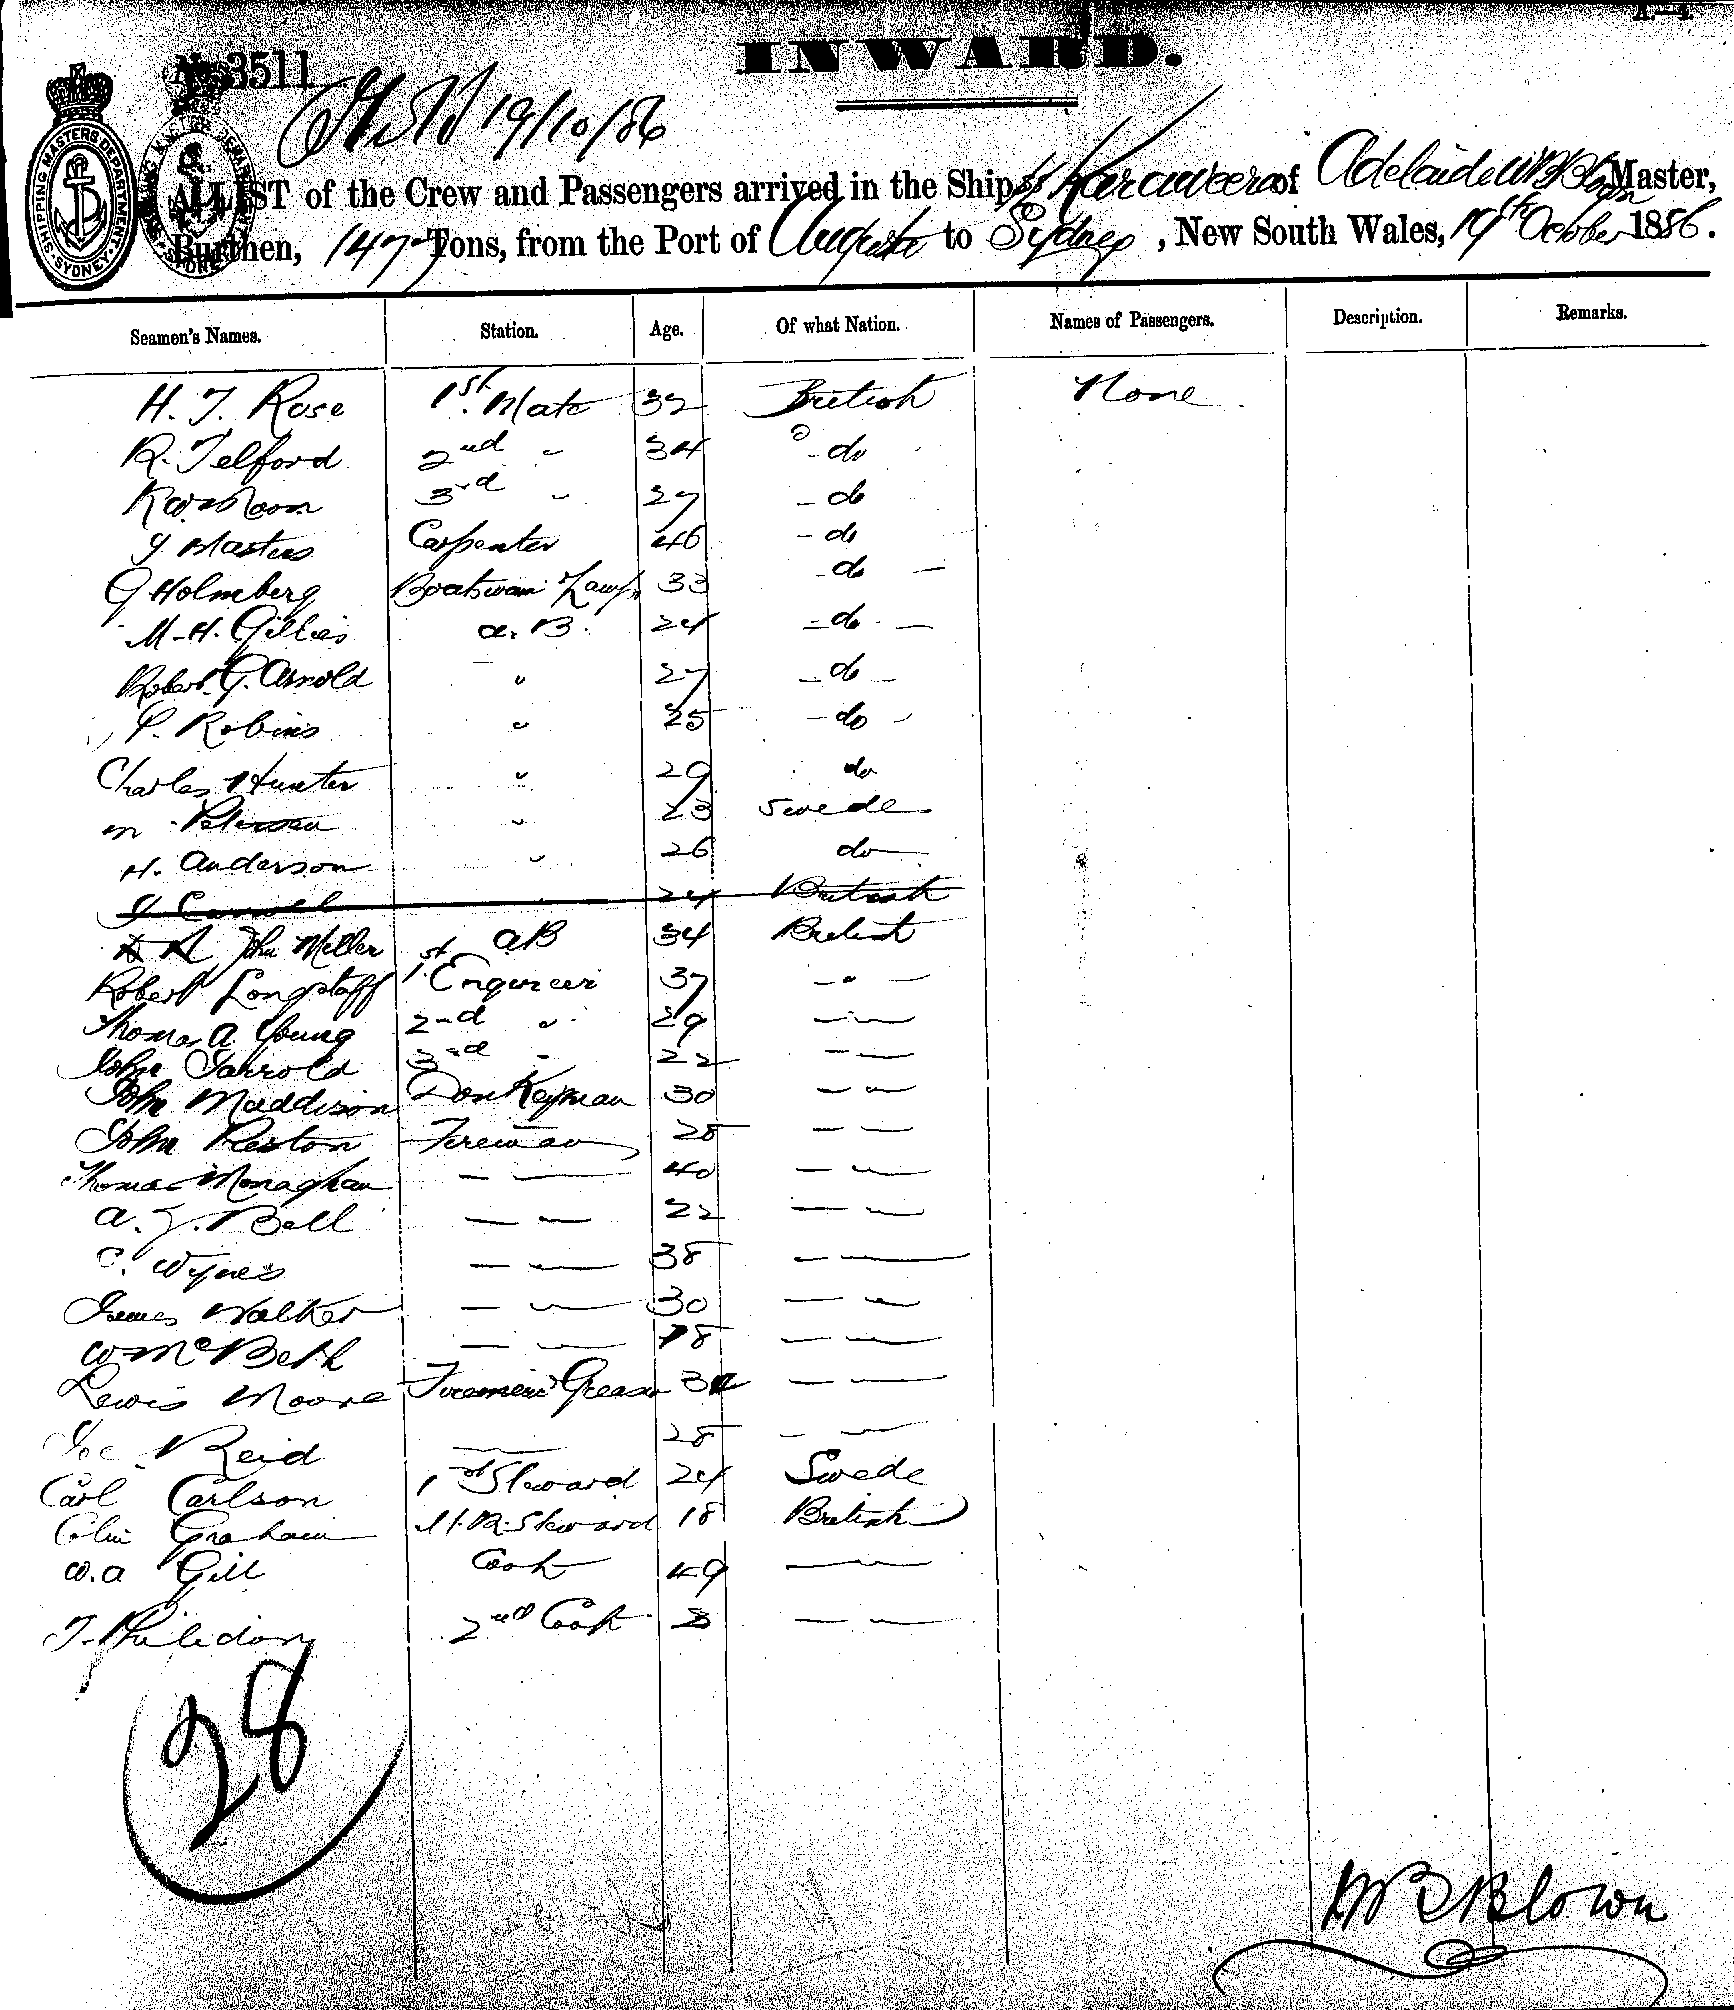 INWARD.
No. 3511
19/10/86
SHIPPING MASTERS DEPARTMENT SYDNEY
A LIST of the Crew and Passengers arrived in the Ship SS Kurrawera of Adelaide W B Blown Master,
Burthen, 1477 Tons, from the Port of Augusta to Sydney, New South Wales, 19th October 1886.
Seamen's Names. Station. Age. Of what Nation. Names of Passengers. Description. Remarks.
H. J. Rose 1st Mate 32 British None
R. Telford 2nd " 34 - do
3rd " 27 - do
J. Masters Carpenter 46 - do
G Holmberg Boatswain Lamps 33 - do -
M. H. Gillies A. B. 24 - do -
Robert G. Arnold " 27 - do -
P. Robins " 25 - do -
Charles Hunter " 29 do
M. Petersen " 23 Swede
H. Anderson " 26 do
24 British
John Miller AB 34 British
Robert Longstaff 1st Engineer 37 - " -
Thomas A. Young 2nd " 29 - " -
John Jarrold 3rd " 22 - " -
John Maddison Donkeyman 30 - " -
John Preston Fireman 28 - " -
Thomas Monaghan - " - 40 - " -
A. J. Bell - " - 22 - " -
C. Wynes - " - 38 - " -
James Walker - " - 30 - " -
W McBeth - " - 18 - " -
Lewis Moore Firemen & Greaser - " -
Joe Reid 28 - " -
Carl Carlson 1st Steward 24 Swede
Colin Graham M.R. Steward 18 British
W. A Gill Cook 49 - " -
T. Philidor 2nd Cook - " -
28
W B Blown